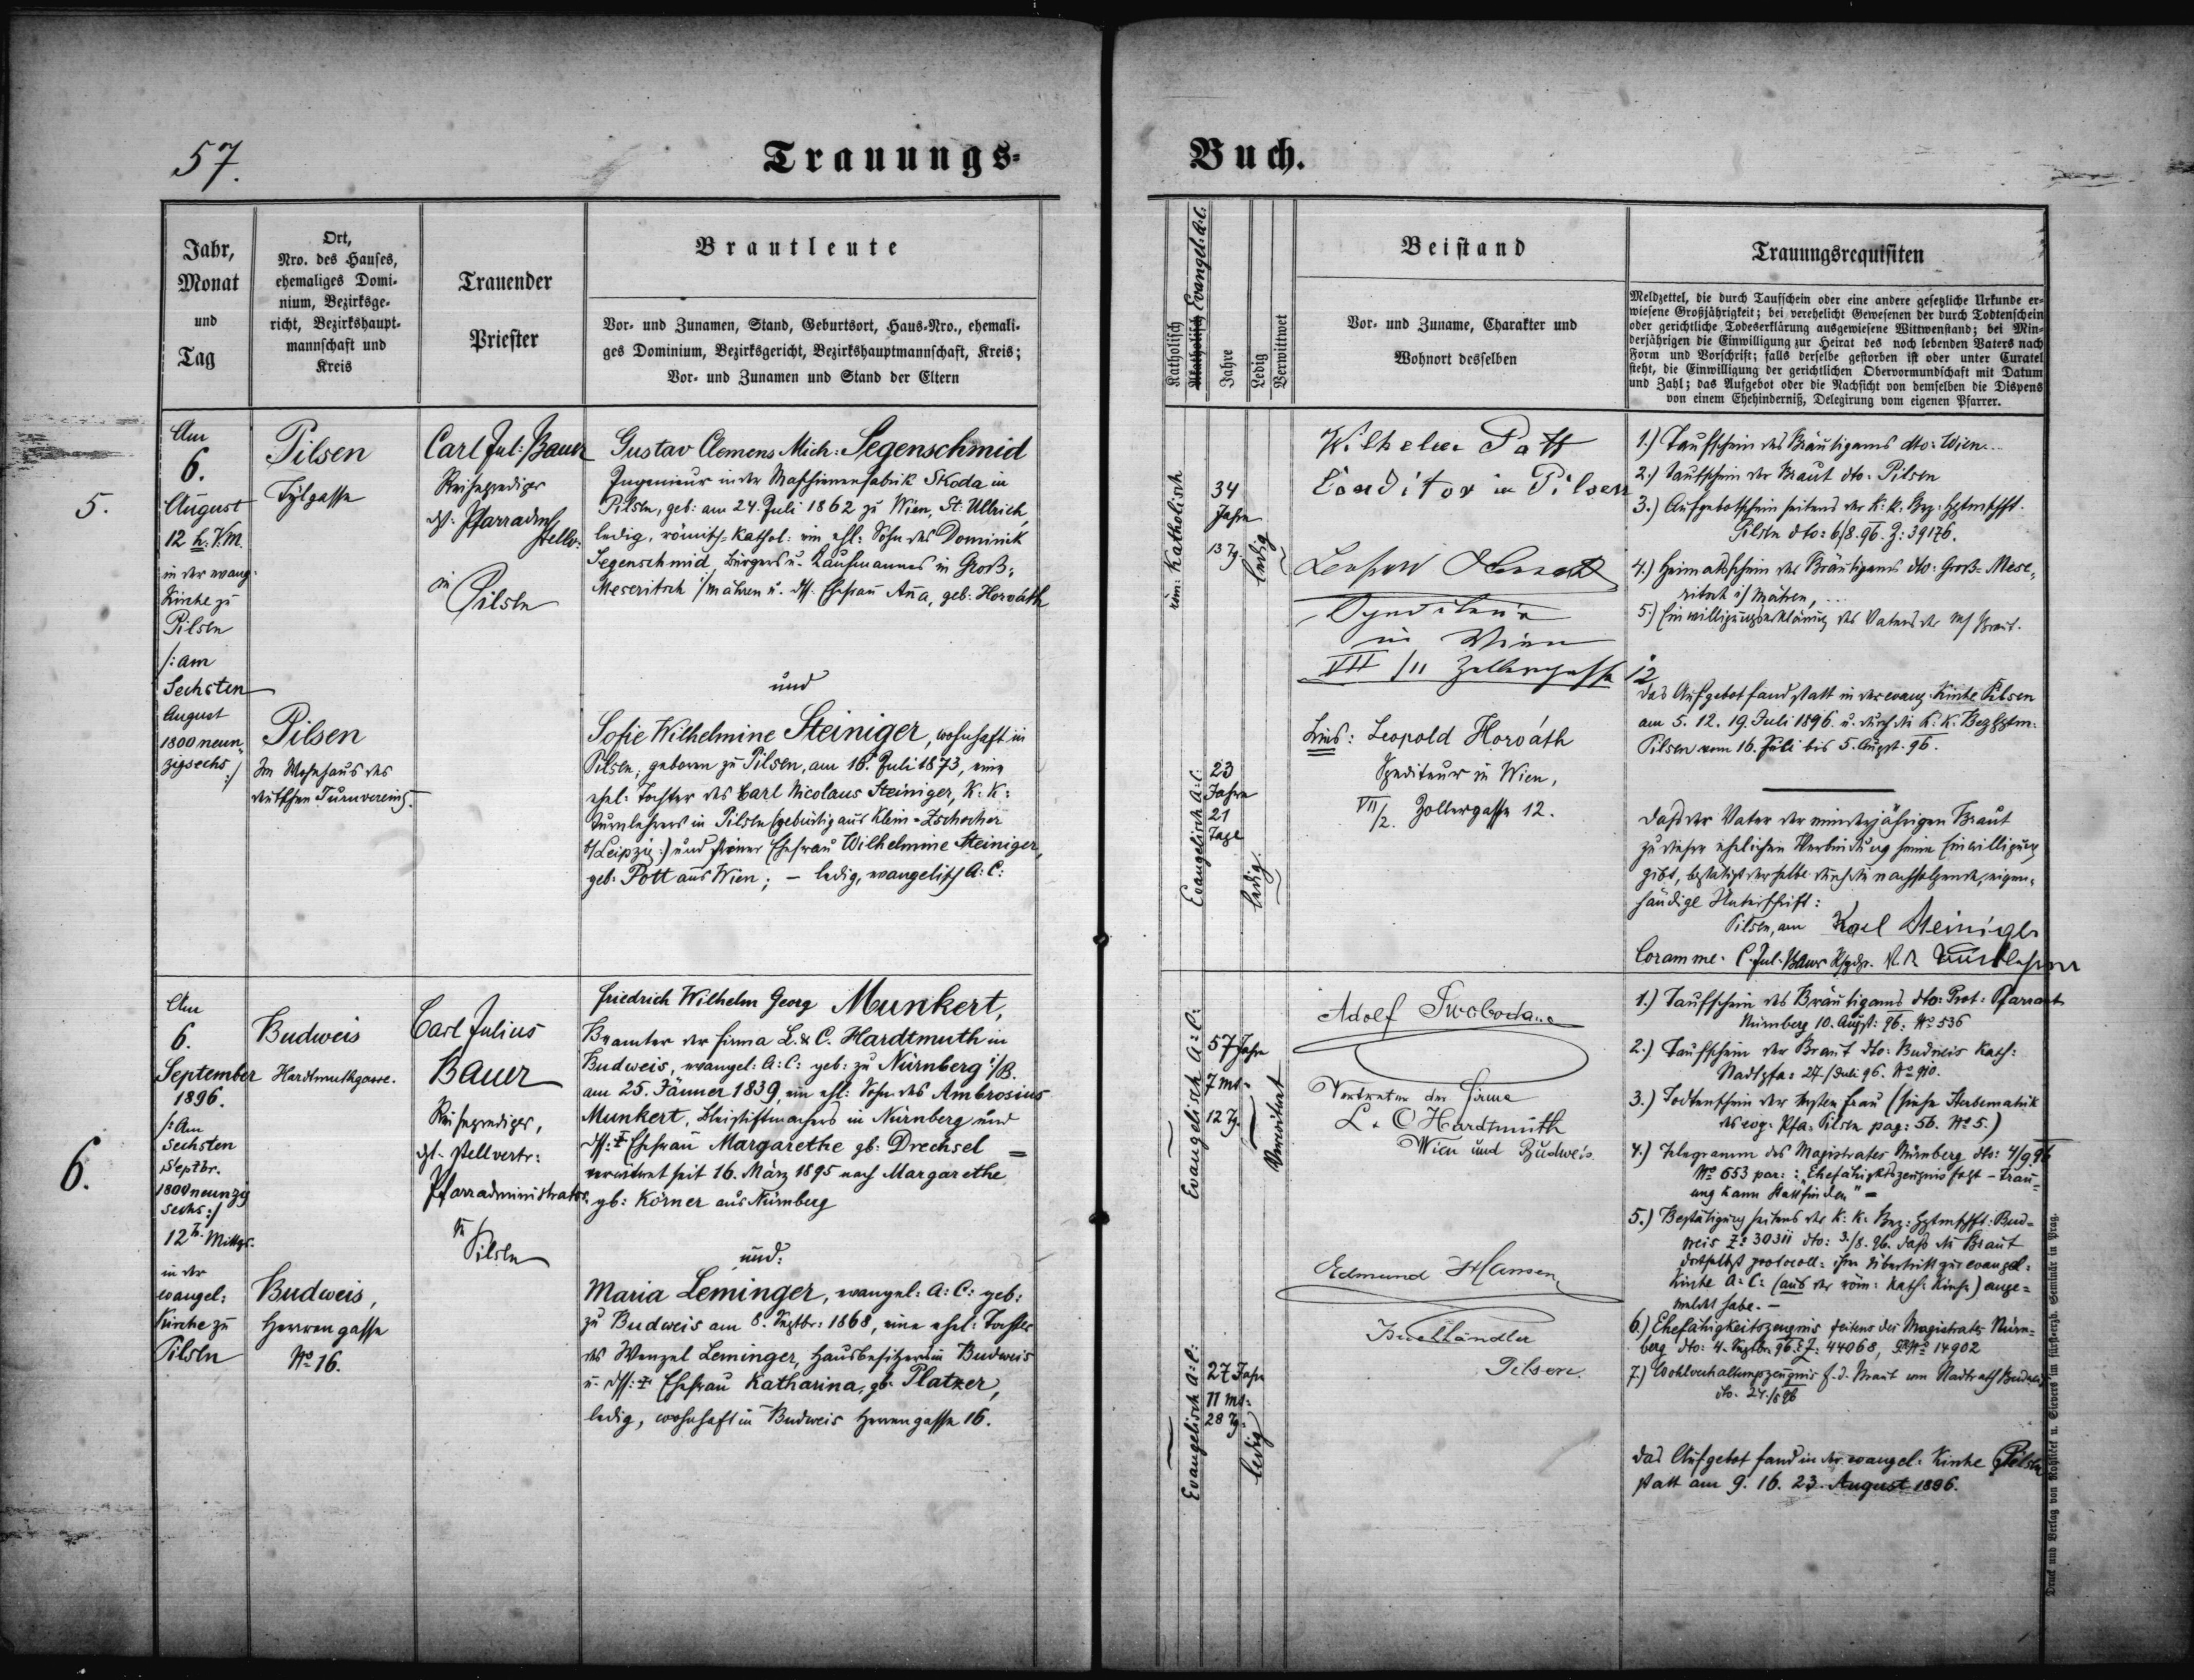 57.
Trauungs-
Buch.
Jahr,
Monat
und
Tag
Ort,
Nro. des Hauses,
ehemaliges Domi-
nium, Bezirksge-
richt, Bezirkshaupt-
mannschaft und
Kreis
Trauender
Priester
Brautleute
Vor- und Zunamen, Stand, Geburtsort, Haus-Nro., ehemali-
ges Dominium, Bezirksgericht, Bezirkshauptmannschaft, Kreis;
Vor- und Zunamen und Stand der Eltern
Katholisch
Akatholisch Evangel. A. C.
Jahre
Ledig
Verwittwet
Beistand
Vor- und Zuname, Charakter und
Wohnort desselben
Trauungsrequisiten
Meldzettel, die durch Taufschein oder eine andere gesetzliche Urkunde er-
wiesene Großjährigkeit; bei verehelicht Gewesenen der durch Todtenschein
oder gerichtliche Todeserklärung ausgewiesene Wittwenstand; bei Min-
derjährigen die Einwilligung zur Heirat des noch lebenden Vaters nach
Form und Vorschrift; falls derselbe gestorben ist oder unter Curatel
steht, die Einwilligung der gerichtlichen Obervormundschaft mit Datum
und Zahl; das Aufgebot oder die Nachsicht von demselben die Dispens
von einem Ehehinderniß, Delegirung vom eigenen Pfarrer.
5.
Am
6.
August
12 h. V.M.
in der evang.
Kirche zu
Pilsen
/: am
Sechsten
August
1800 neun-
zigsechs :/
Pilsen
Tylgasse
Pilsen
Im Wohnhaus des
deutschen Turnvereins.
Carl Jul: Bauer
Reiseprediger
dzt. Pfarradms
stellv.
in
Pilsen
Gustav Clemens Mich: Segenschmid
Ingenieur in der Maschinenfabrik Skoda in
Pilsen, geb: am 24. Juli 1862 zu Wien, St. Ullrich,
ledig, römisch-kathol: ein ehl: Sohn des Dominik
Segenschmid, Bürgers u. Kaufmannes in Groß-
Meseritsch i/Mähren u. dss. Ehefrau Anna, geb: Horváth
und
Sofie Wilhelmine Steiniger, wohnhaft in
Pilsen, geboren zu Pilsen, am 16. Juli 1873, eine
ehel: Tochter des Carl Nicolaus Steiniger, K: K:
Turnlehrers in Pilsen (gebürtig aus Klein-Zschocher
b/Leipzig:) und seiner Ehefrau Wilhelmine Steiniger,
geb: Pott aus Wien; – ledig, evangelisch A: C:
röm: Katholisch
34
Jahre
13 Tg.
ledig
Evangelisch A: C:
23
Jahre
21
Tage
ledig
Wilhelm Pott
Conditor in Pilsen
Leopold Horvath
Spediteur
in Wien
VII/11 Zollergasse 12
Lies: Leopold Horváth
Spediteur in Wien,
VII/2. Zollergasse 12.
1.) Taufschein des Bräutigams dto: Wien...
2.) Taufschein der Braut dto: Pilsen
3.) Aufgebotschein seitens der K: K. Bez: Hptmschft.
Pilsen dto: 6/8. 96. Z: 39176.
4.) Heimatschein des Bräutigams dto: Groß-Mese-
ritsch i/ Mähren, ...
5.) Einwilligungserklärung des Vaters der Braut.
Das Aufgebot fand statt in der evang. Kirche Pilsen
am 5. 12. 19. Juli 1896 u. durch die K: K. Bezhptm:
Pilsen vom 16. Juli bis 5. Augst. 96.
Daß der Vater der minderjährigen Braut
zu dieser ehelichen Verbindung seine Einwilligung
gibt, bestätigt derselbe durch die nachfolgende, eigen-
händige Unterschrift:
Pilsen, am Karl Steiniger
Coram me: C. Jul. Bauer K. K. Turnlehrer
6.
Am
6.
September
1896.
/: Am
Sechsten
Septbr.
1800 neunzig
sechs :/
12 h. Mittgs.
in der
evangel:
Kirche zu
Pilsen
Budweis
Hardtmuthgasse.
Budweis,
Herrengasse
No 16.
Carl Julius
Bauer
Reiseprediger,
dzt. stellvertr:
Pfarradministrator
in
Pilsen
Friedrich Wilhelm Georg Munkert,
Beamter der Firma L. & C. Hardtmuth in
Budweis, evangel: A: C: geb: zu Nürnberg i/B.
am 25. Jänner 1839, ein ehl: Sohn des Ambrosius
Munkert, Bleistiftmachers in Nürnberg und
dss: † Ehefrau Margarethe gb: Drechsel =
verwitwet seit 16. März 1895 nach Margarethe
gb: Körner aus Nürnberg
und:
Maria Leminger, evangel: A: C: geb:
zu Budweis am 8. Septbr: 1868, eine ehel: Tochter
des Wenzel Leminger, Hausbesitzers in Budweis
u. dss: † Ehefrau Katharina, gb: Platzer,
ledig, wohnhaft in Budweis Herrengasse 16.
Evangelisch A: C:
57 Jahre
7 mt:
12 Tg.
Verwitwet
Evangelisch A: C:
27 Jahre
11 mt:
28 Tg.
ledig
Adolf Swoboda
Vertreter der Firma
L. & C Hardtmuth
Wien und Budweis.
Edmund Hansen
Buchhändler
Pilsen.
1.) Taufschein des Bräutigams dto: Prot: Pfarramt
Nürnberg 10. Augst: 96. No 536
2.) Taufschein der Braut dto: Budweis Kath:
Stadtpfa: 27./Juli 96. No 910.
3.) Todtenschein der ersten Frau (siehe Sterbematrik
des evg. Pfa: Pilsen pag: 56. No 5.)
4.) Telegramm des Magistrates Nürnberg dto: 4/9 96
No 653 par: : „Ehefähigktszeugnis folgt – Trau-
ung kann stattfinden" =
5.) Bestätigung seitens der K: K: Bez: Hptmschft: Bud-
weis Z: 30311 dto: 3./8. 96. daß die Braut
dortselbst protocoll: ihren Übertritt zur evangel:
Kirche A: C: (aus der röm: kath: Kirche) ange-
meldet habe. –
6.) Ehefähigkeitszeugnis seitens des Magistrats Nürn-
berg dto: 4. Septbr. 96. Z: 44068, No 14902
7.) Wohlverhaltungszeugnis f. d. Braut vom Stadtrath Budweis
dto. 24./8 96
Das Aufgebot fand in der evangel: Kirche Pilsen
statt am 9. 16. 23. August 1896.
Druck und Verlag von Rohlicek u. Sievers im fürsterzb. Seminär in Prag.